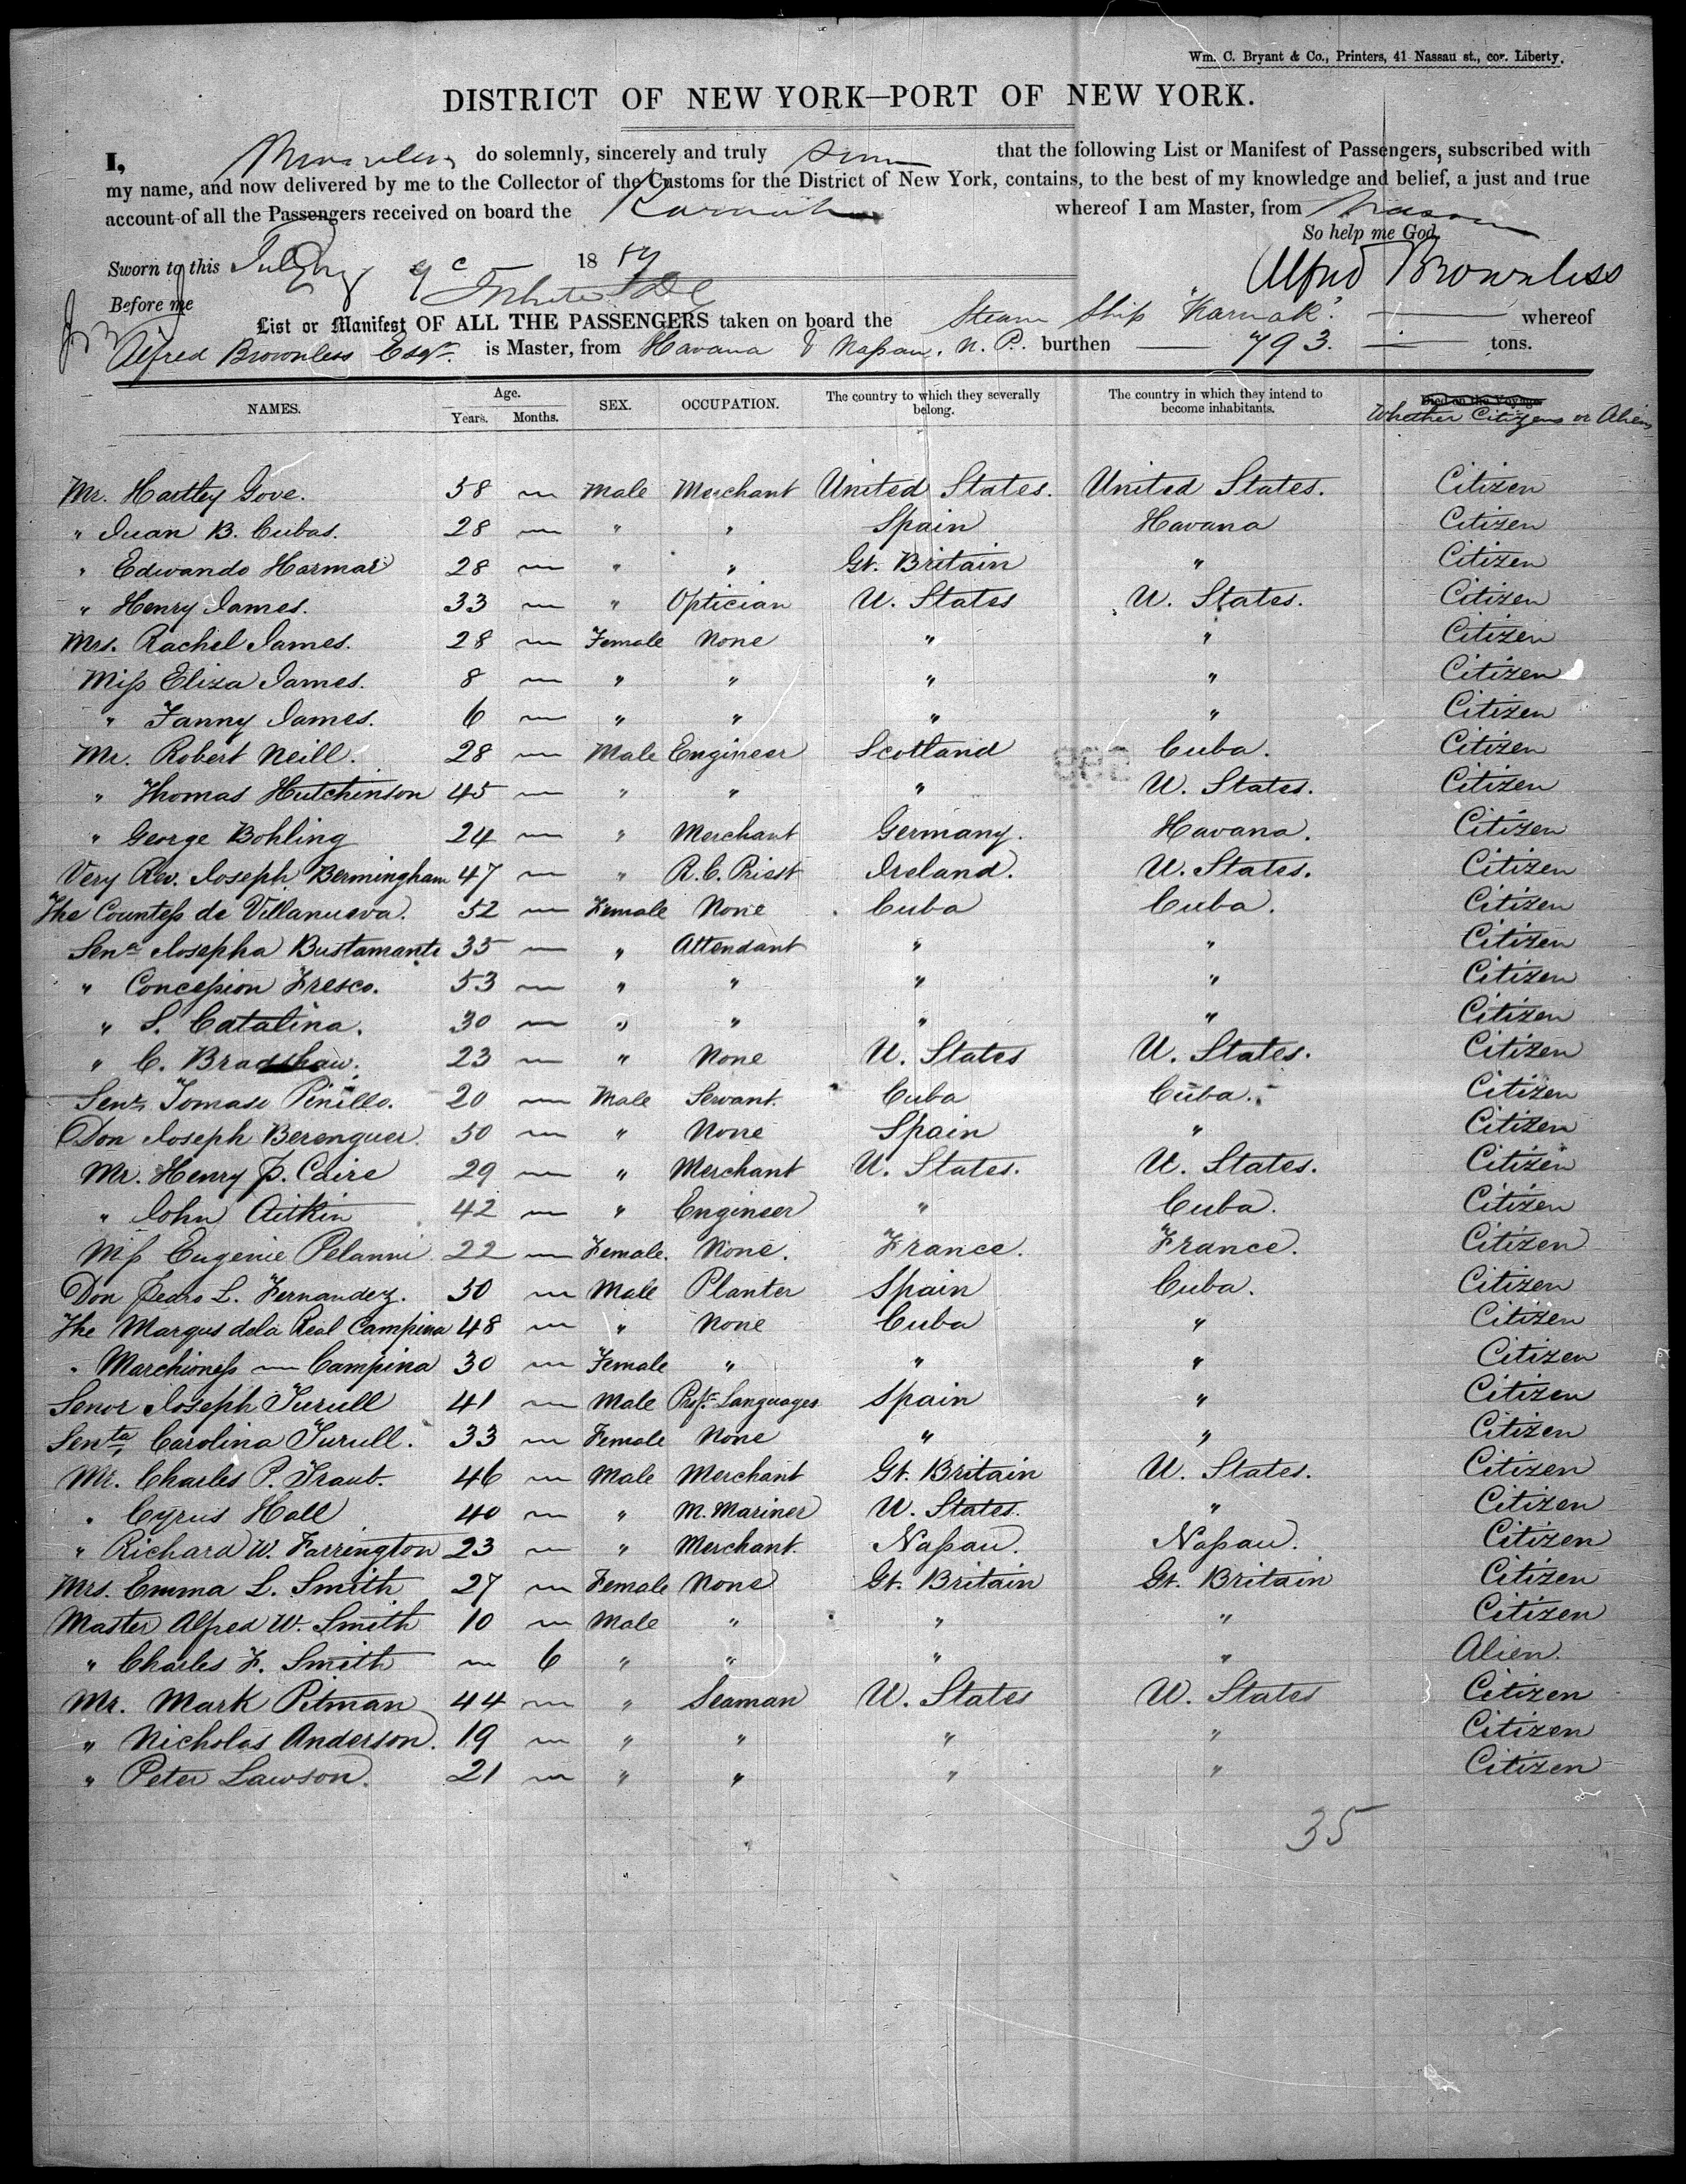 Wm. C. Bryant & Co., Printers, 41 Nassau st., cor. Liberty.
DISTRICT OF NEW YORK—PORT OF NEW YORK.
I, do solemnly, sincerely and truly that the following List or Manifest of Passengers, subscribed with
my name, and now delivered by me to the Collector of the Customs for the District of New York, contains, to the best of my knowledge and belief, a just and true
account of all the Passengers received on board the Karnak whereof I am Master, from Nassau
So help me God.
Sworn to this July 18 Alfred Brownless
Before me
List or Manifest OF ALL THE PASSENGERS taken on board the Steam Ship "Karnak". whereof
Alfred Brownless Esqr. is Master, from Havana & Naſsau, N. P. burthen 793. tons.
NAMES. Age. Years. Months. SEX. OCCUPATION. The country to which they severally belong. The country in which they intend to become inhabitants. Died on the Voyage Whether Citizens or Aliens
Mr. Hartley Gove. 58 — Male Merchant United States. United States. Citizen
" Juan B. Cubas. 28 — " " Spain Havana Citizen
" Edwando Harmar 28 — " " Gt. Britain " Citizen
" Henry James. 33 — " Optician U. States U. States. Citizen
Mrs. Rachel James. 28 — Female None " " Citizen
Miſs Eliza James. 8 — " " " " Citizen
" Fanny James. 6 — " " " " Citizen
Mr. Robert Neill. 28 — Male Engineer Scotland Cuba. Citizen
" Thomas Hutchinson 45 — " " " U. States. Citizen
" George Bohling 24 — " Merchant Germany. Havana. Citizen
Very Rev. Joseph Bermingham 47 — " R.C. Priest Ireland. U. States. Citizen
The Counteſs de Villanueva. 52 — Female None Cuba Cuba. Citizen
Sena Josepha Bustamante 35 — " Attendant " " Citizen
" Conceſsion Fresco. 53 — " " " " Citizen
" S. Catalina. 30 — " " " " Citizen
" C. Bradshaw. 23 — " None U. States U. States. Citizen
Senr Tomaso Pinillo. 20 — Male Servant. Cuba Cuba. Citizen
Don Joseph Berenguer. 50 — " None Spain " Citizen
Mr. Henry P. Caire 29 — " Merchant U. States. U. States. Citizen
" John Aitkin 42 — " Engineer " Cuba. Citizen
Miſs Eugenie Pelanni 22 — Female. None. France. France. Citizen
Don Pedro L. Fernandez. 50 — Male Planter Spain Cuba. Citizen
The Marqus dela Real Campina 48 — " None Cuba " Citizen
" Marchioneſs — Campina 30 — Female " " " Citizen
Senor Joseph Turull 41 — Male Profr Languages Spain " Citizen
Senta Carolina Turull. 33 — Female None " " Citizen
Mr. Charles P. Traub. 46 — Male Merchant Gt. Britain U. States. Citizen
" Cyrus Hall 40 — " M. Mariner U. States. " Citizen
" Richard W. Farrington 23 — " Merchant. Naſsau. Naſsau. Citizen
Mrs. Emma L. Smith 27 — Female None Gt. Britain Gt. Britain Citizen
Master Alfred W. Smith 10 — Male " " " Citizen
" Charles F. Smith — 6 " " " " Alien.
Mr. Mark Pitman 44 — " Seaman U. States U. States Citizen
" Nicholas Anderson. 19 — " " " " Citizen
" Peter Lawson. 21 — " " " " Citizen
35